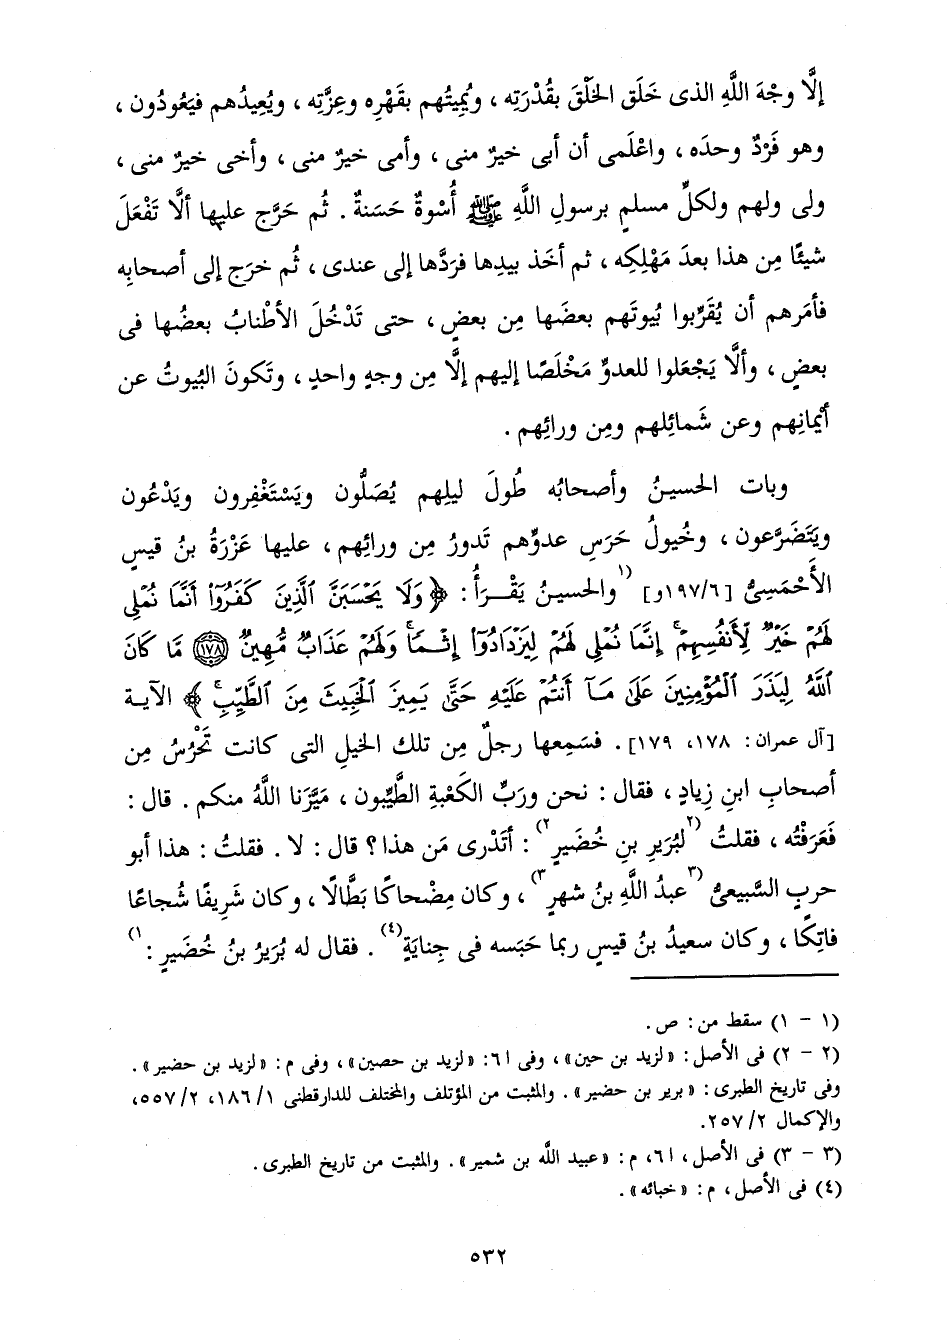 إلَّا وجْهَ اللَّهِ الذى خَلَق الخَلْقَ بقُدْرَتِه ، ويُمِيتُهم بقَهْرِه وعِزَّتِه ، ويُعِيدُهم فيَعُودُون ،
وهو فَرْدٌ وحدَه ، واعْلَمى أن أبى خيرٌ منى ، وأمى خيرٌ منى ، وأخى خيرٌ منى ،
ولى ولهم ولكلِّ مسلمٍ برسولِ اللَّهِ ﷺ أُسْوةٌ حَسَنةٌ . ثُم حَرَّج عليها ألَّا تَفْعَلَ
شيئًا مِن هذا بعدَ مَهْلِكِه ، ثم أخَذ بيدِها فرَدَّها إلى عندى ، ثُم خرَج إلى أصحابِه
فأمَرهم أن يُقَرِّبوا بُيوتَهم بعضَها مِن بعضٍ ، حتى تَدْخُلَ الأطْنابُ بعضُها فى
بعضٍ ، وألَّا يَجْعَلوا للعدوِّ مَخْلَصًا إليهم إلَّا مِن وجهٍ واحدٍ ، وتَكونَ البُيوتُ عن
أيْمانِهم وعن شَمائِلهم ومِن ورائِهم .
وبات الحسينُ وأصحابُه طُولَ ليلِهم يُصَلُّون ويَسْتَغْفِرون ويَدْعُون
ويَتَضَرَّعون ، وخُيولُ حَرَسِ عدوِّهم تَدورُ مِن ورائِهم ، عليها عَزْرَةُ بنُ قيسٍ
الأَحْمَسِىُّ [٦/١٩٧و] (١والحسينُ يَقْـرَأُ : ﴿ وَلَا يَحْسَبَنَّ الَّذِينَ كَفَرُوٓا۟ أَنَّمَا نُمْلِى
لَهُمْ خَيْرٌ لِّأَنفُسِهِمْ ۚ إِنَّمَا نُمْلِى لَهُمْ لِيَزْدَادُوٓا۟ إِثْمًا ۚ وَلَهُمْ عَذَابٌ مُّهِينٌ ﴿١٧٨﴾ مَّا كَانَ
ٱللَّهُ لِيَذَرَ ٱلْمُؤْمِنِينَ عَلَىٰ مَآ أَنتُمْ عَلَيْهِ حَتَّىٰ يَمِيزَ ٱلْخَبِيثَ مِنَ ٱلطَّيِّبِ ۗ ﴾ الآيـة
[آل عمران: ١٧٨، ١٧٩] . فسَمِعها رجلٌ مِن تلك الخيلِ التى كانت تَحْرُسُ مِن
أصحابِ ابنِ زِيادٍ ، فقال : نحن ورَبِّ الكَعْبةِ الطَّيِّبون ، مَيَّزَنا اللَّهُ منكم . قال :
فَعَرَفْتُه ، فقلتُ (٢لبُرَيرِ بنِ خُضَيرٍ٢) : أتَدْرى مَن هذا ؟ قال : لا . فقلتُ : هذا أبو
حربٍ السَّبيعىُّ (٣عبدُ اللَّهِ بنُ شهرٍ٣) ، وكان مِضْحاكًا بَطَّالًا ، وكان شَرِيفًا شُجاعًا
فاتِكًا ، وكان سعيدُ بنُ قيسٍ ربما حَبَسه فى جِنايَةٍ(٤) . فقال له بُرَيرُ بنُ خُضَيرٍ١) :
(١ - ١) سقط من : ص .
(٢ - ٢) فى الأصل : « لزيد بن حين » ، وفى ٦١ : « لزيد بن حصين » ، وفى م : « لزيد بن حضير » .
وفى تاريخ الطبرى : « برير بن حضير » . والمثبت من المؤتلف والمختلف للدارقطنى ١/ ١٨٦، ٢/ ٥٥٧،
والإكمال ٢/ ٢٥٧.
(٣ - ٣) فى الأصل ، ٦١، م : « عبيد اللَّه بن شمير » . والمثبت من تاريخ الطبرى .
(٤) فى الأصل ، م : « خبائه » .
٥٣٢